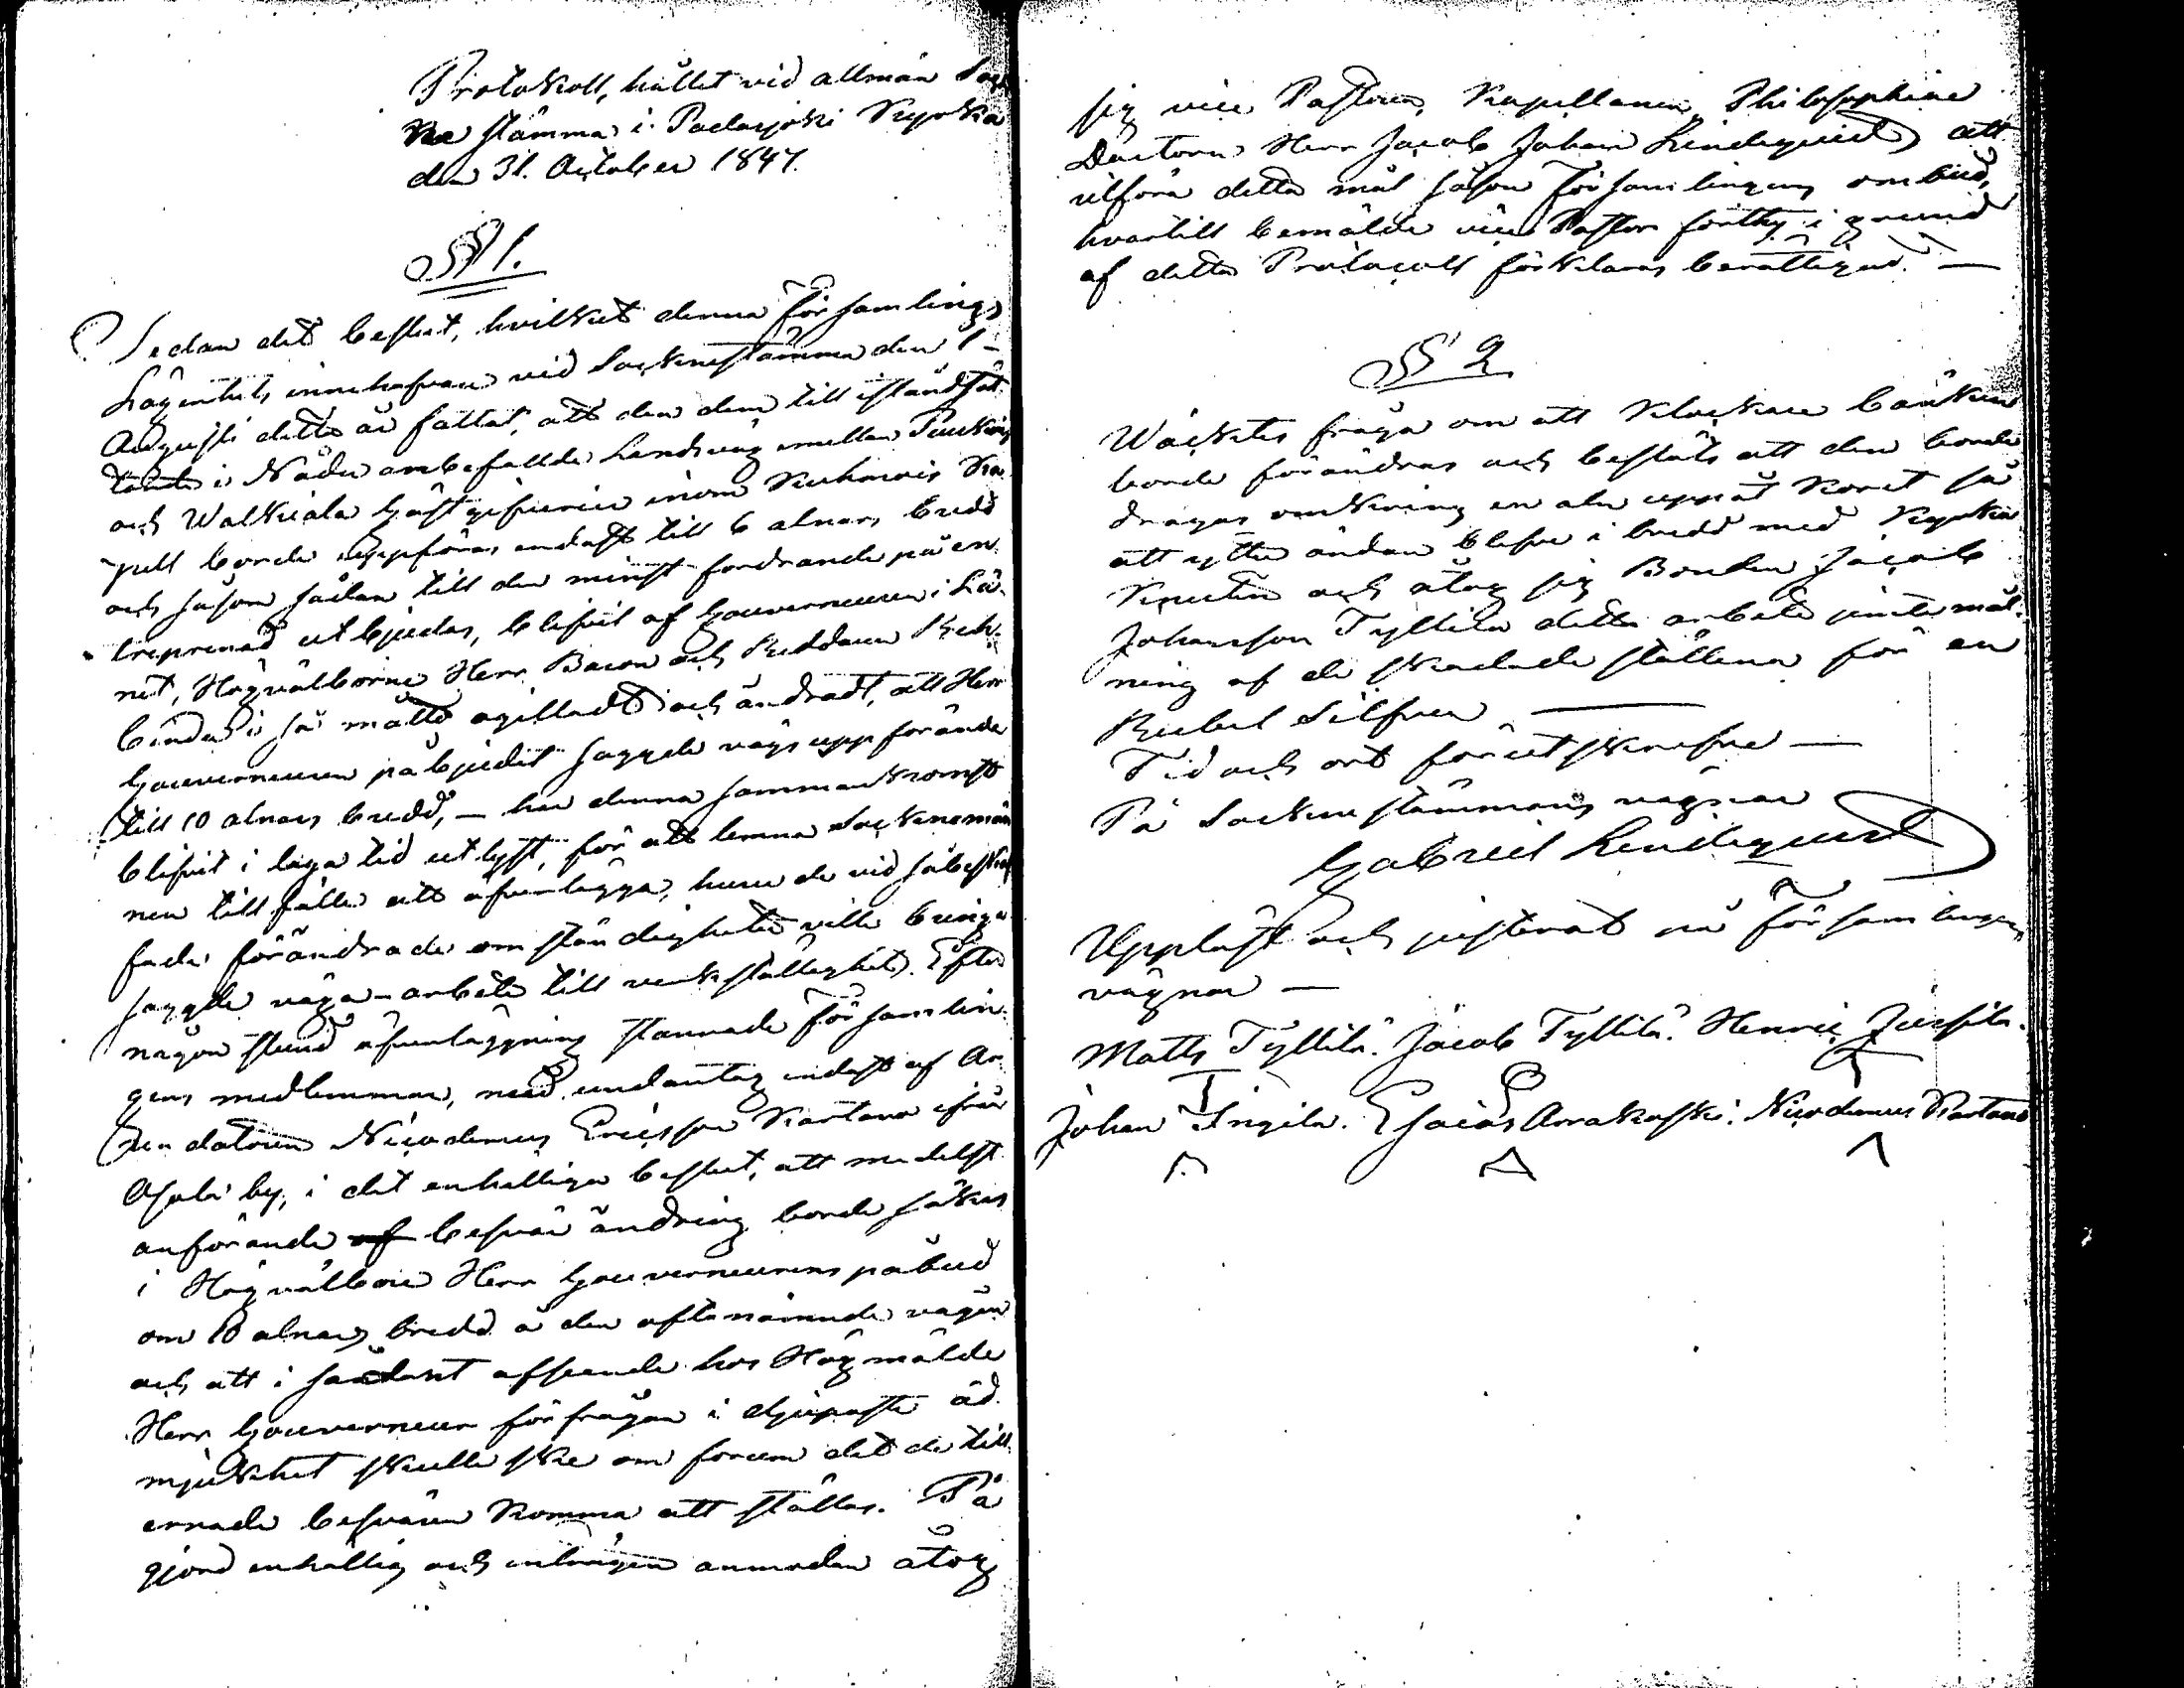 Protokoll, hållet vid allmän Sock
ne stämma i Padasjoki Kyrka
den 31. October 1847.
§ 1.
Sedan det beslut, hvilket denna Församlings
Lägenhets innehafvare vid Sockne stämma den 1
Augusti detta år fattat, att den dem till iståndsät
tande i Nåder anbefallde Landsväg emellan
och Walkiala Gästgifverier inom Kuhmois Ka
pell borde uppföras endast till 6 alnars bredd
och såsom sådan till den minst fordrande på en
treprenad utbjudas, blifvit af Gouverneuren i Lä
net, Högvälborne Herr Baron och Riddaren Reh
binder i så måtto ogilladt och ändradt, att Herr
Gouverneuren påbjudit sagde vägs uppförande
till 10 alnars bredd, — har denna sammankomst
blifvit i laga tid utlyst, för att lemna Socknemän
nen tillfälle att öfverlägga, huru de vid så beskaf
fade förändrade omständigheter ville bringa
sagde väga-arbete till verkställighet. Efter
någon stund öfverläggning stannade Församlin
gens medlemmar, med undantag endast af Ar
rendatoren Nicodemus Ericsson Kartano ifrån
by, i det enhälliga beslut, att medelst
anförande af besvär ändring borde sökas
i Högvälborne Herr Gouverneurens påbud
om 10 alnars bredd å den oftanämnde vägen
och att i sådant afseende hos Högmälde
Herr Gouverneur förfrågan i djupaste öd
mjukhet skulle ske om forum dit de till
ernade besvären komma att ställas. På
gjord enhällig och enträgen anmodan åtog
sig vice Pastoren, Kapellanen, Philosophiae
Doctorn Herr Jacob Johan Lindequist att
utföra detta mål såsom Församlingens ombud,
hvartill bemälde vice Pastor förthy i grund
af detta Protocoll förklaras berättigad. —
§ 2
Wäcktes fråga om att Klockare bänken
borde förändras och beslöts att den borde
dragas omkring en aln uppåt koret så
att yttre ändan blefve i bredd med Kyrko
knuten och åtog sig Bonden Jacob
Johansson Tyllilä detta arbete jemte mål
ning af de skadade ställena för en
Rubel Silfver. —
Tid och ort förutskrefne —
På Sockne stämmans vägnar
Gabriel Lindequist
Uppläst och justerat på Församlingens
vägnar —
Matts Tyllilä. Jacob Tyllilä. Henric Jussila.
Johan Ingila. Esaias Arrakoski. Nicodemus Kartano